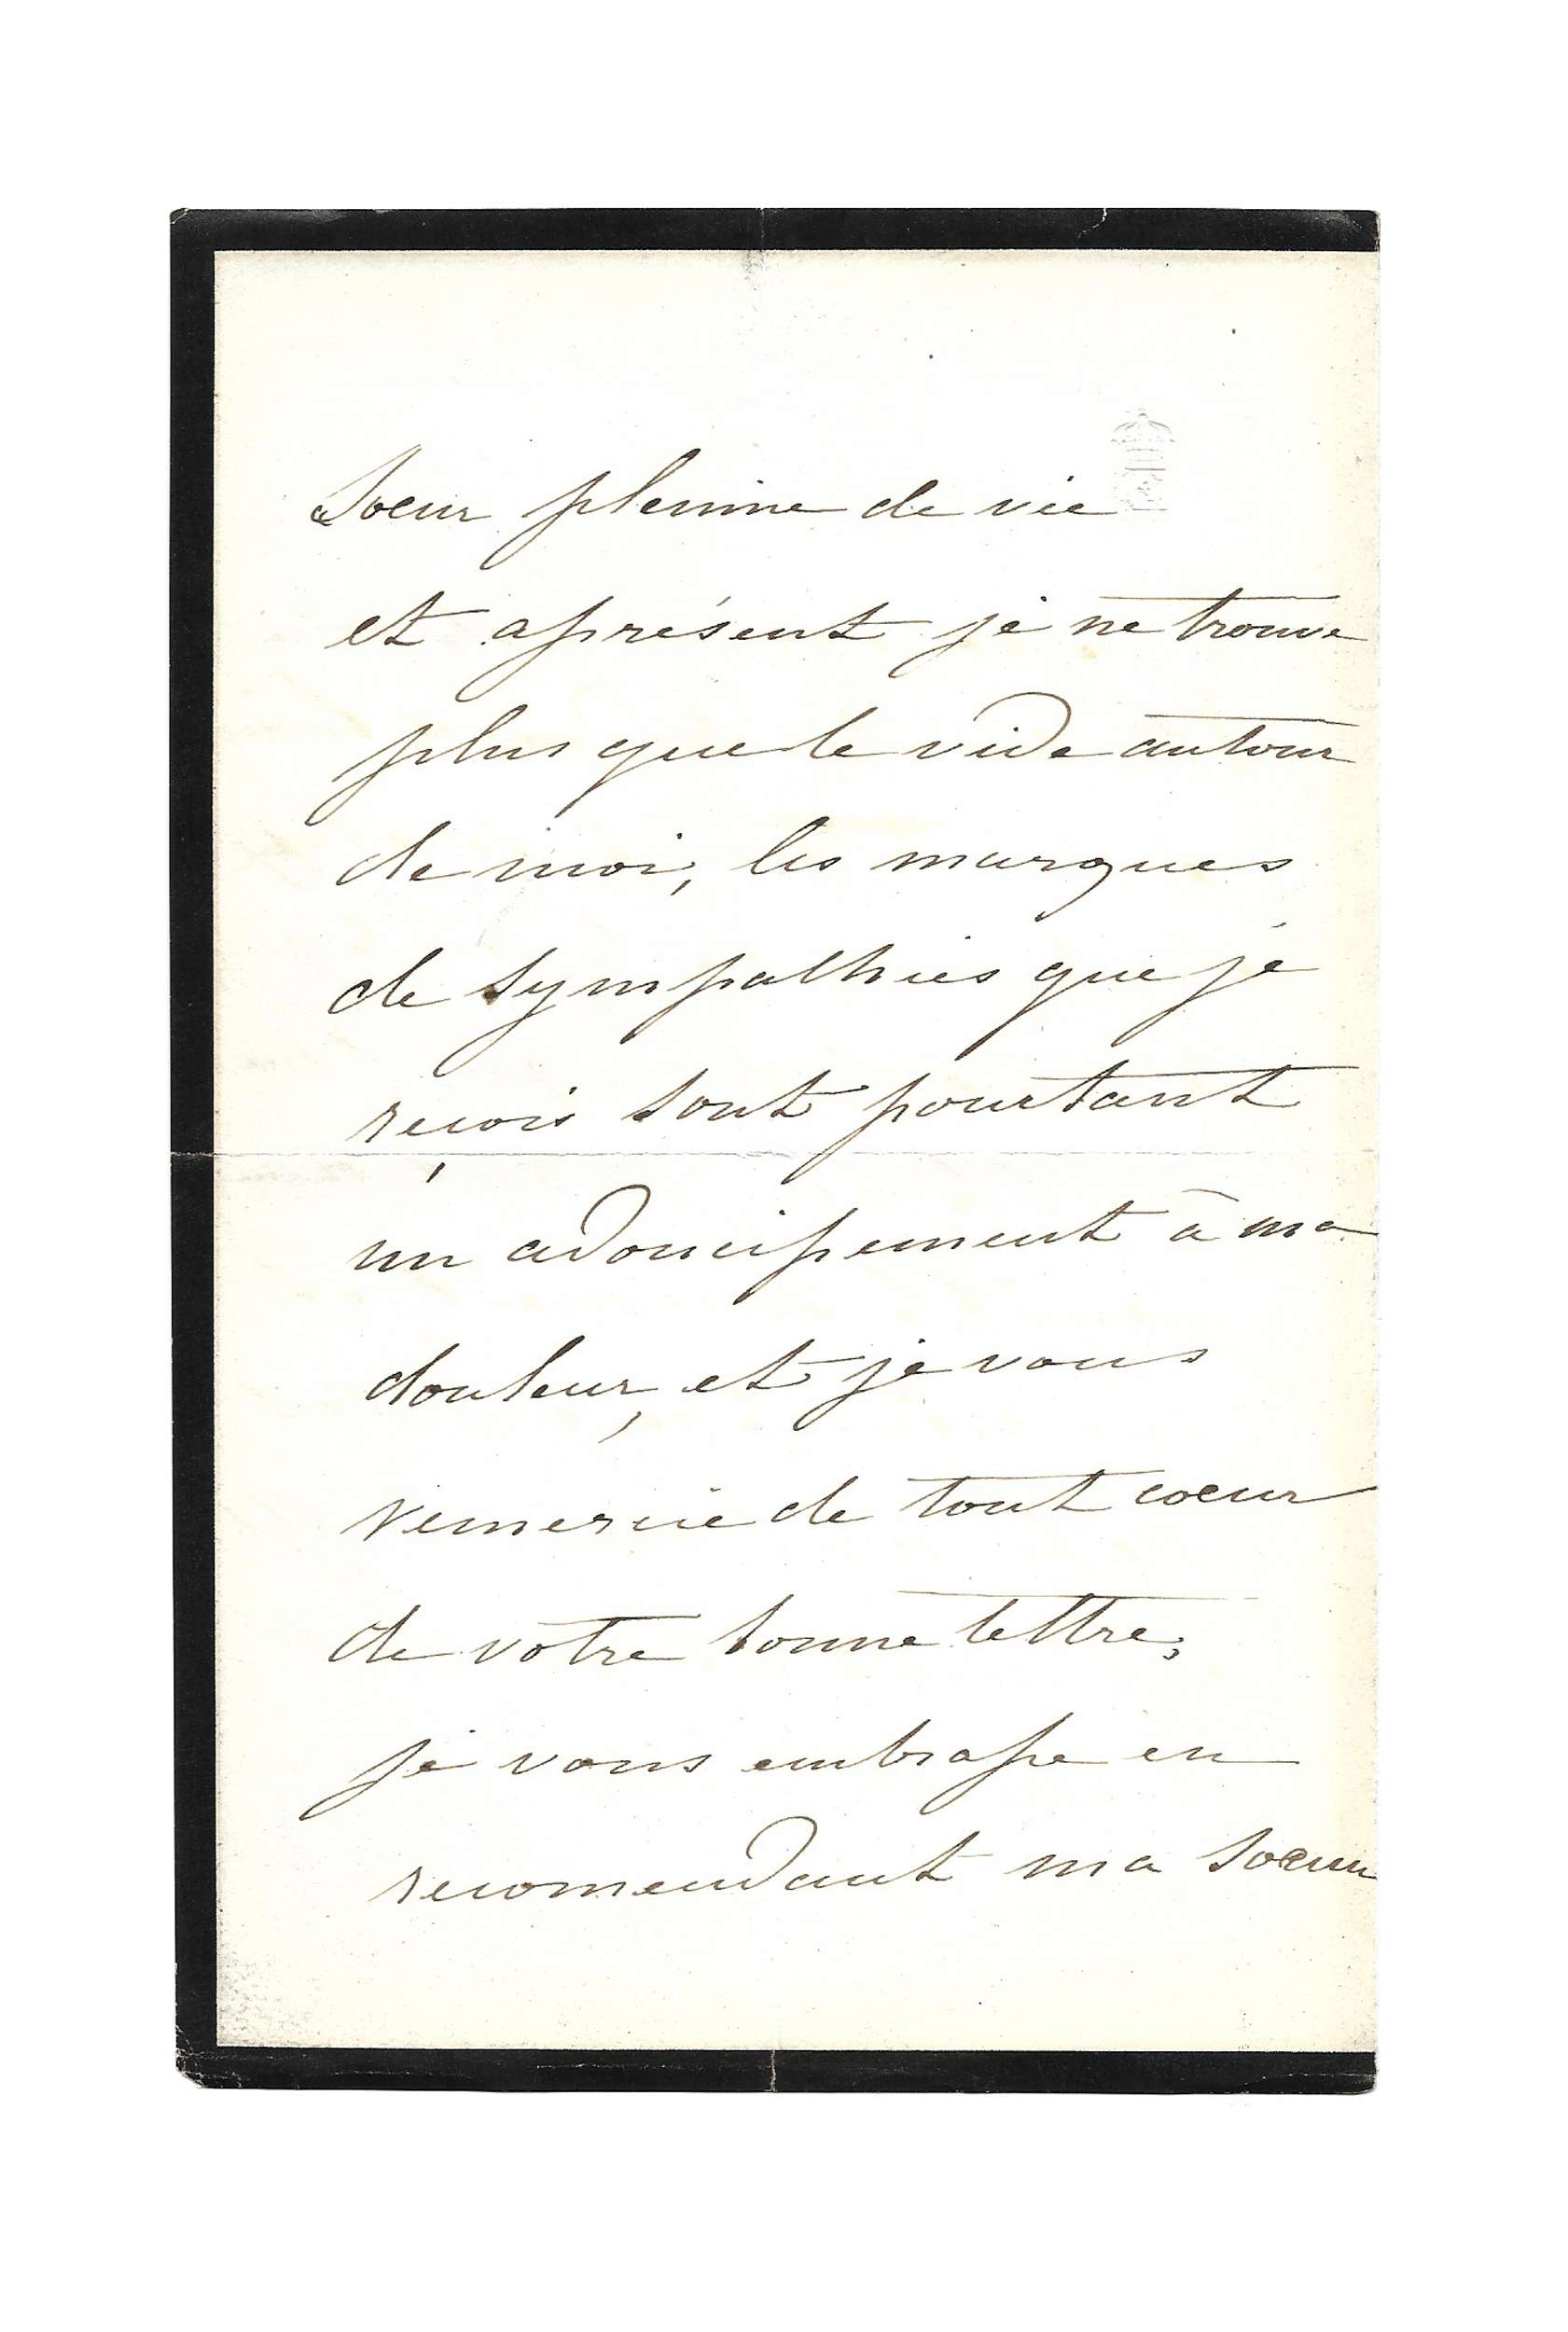 Soeur pleinne de vie
et aprésent je ne trouve
plus que le vide autour
de moi, les marques
de sympathies que je
reçois sont pourtant
un adoucissement à ma
douleur, et je vous
remercie de tout coeur
de votre bonne lettre,
je vous embrasse en
recomendant ma soeur